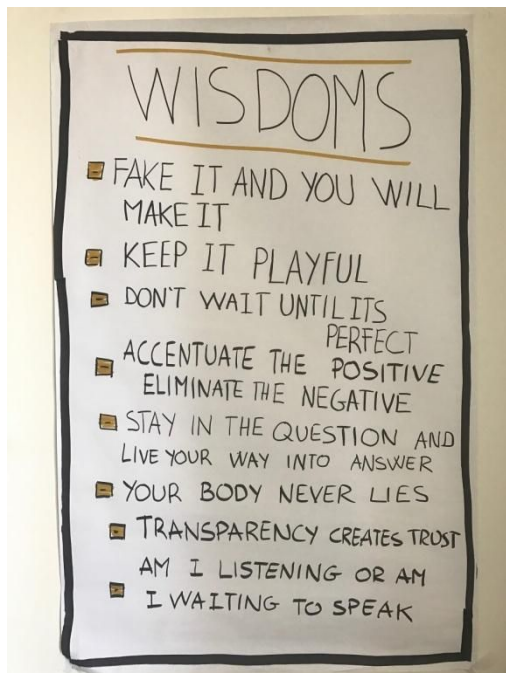 WISDOMS
FAKE IT AND YOU WILL
MAKE IT
KEEP IT PLAYFUL
DON'T WAIT UNTIL ITS
PERFECT
ACCENTUATE THE POSITIVE
ELIMINATE THE NEGATIVE
STAY IN THE QUESTION AND
LIVE YOUR WAY INTO ANSWER
YOUR BODY NEVER LIES
TRANSPARENCY CREATES TRUST
AM I LISTENING OR AM
I WAITING TO SPEAK